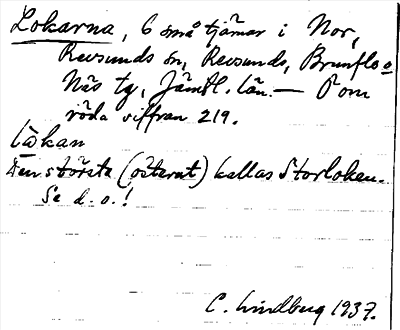 Lokarna, 6 små tjärnar i Nor,
Revsunds sn, Revsunds, Brunflo o
Näs tg, Jämtl. län. — Ö om
röda siffran 219.
lòkan
Den största (österut) kallas Storloken.
Se d. o.!
C. Lindberg 1937.